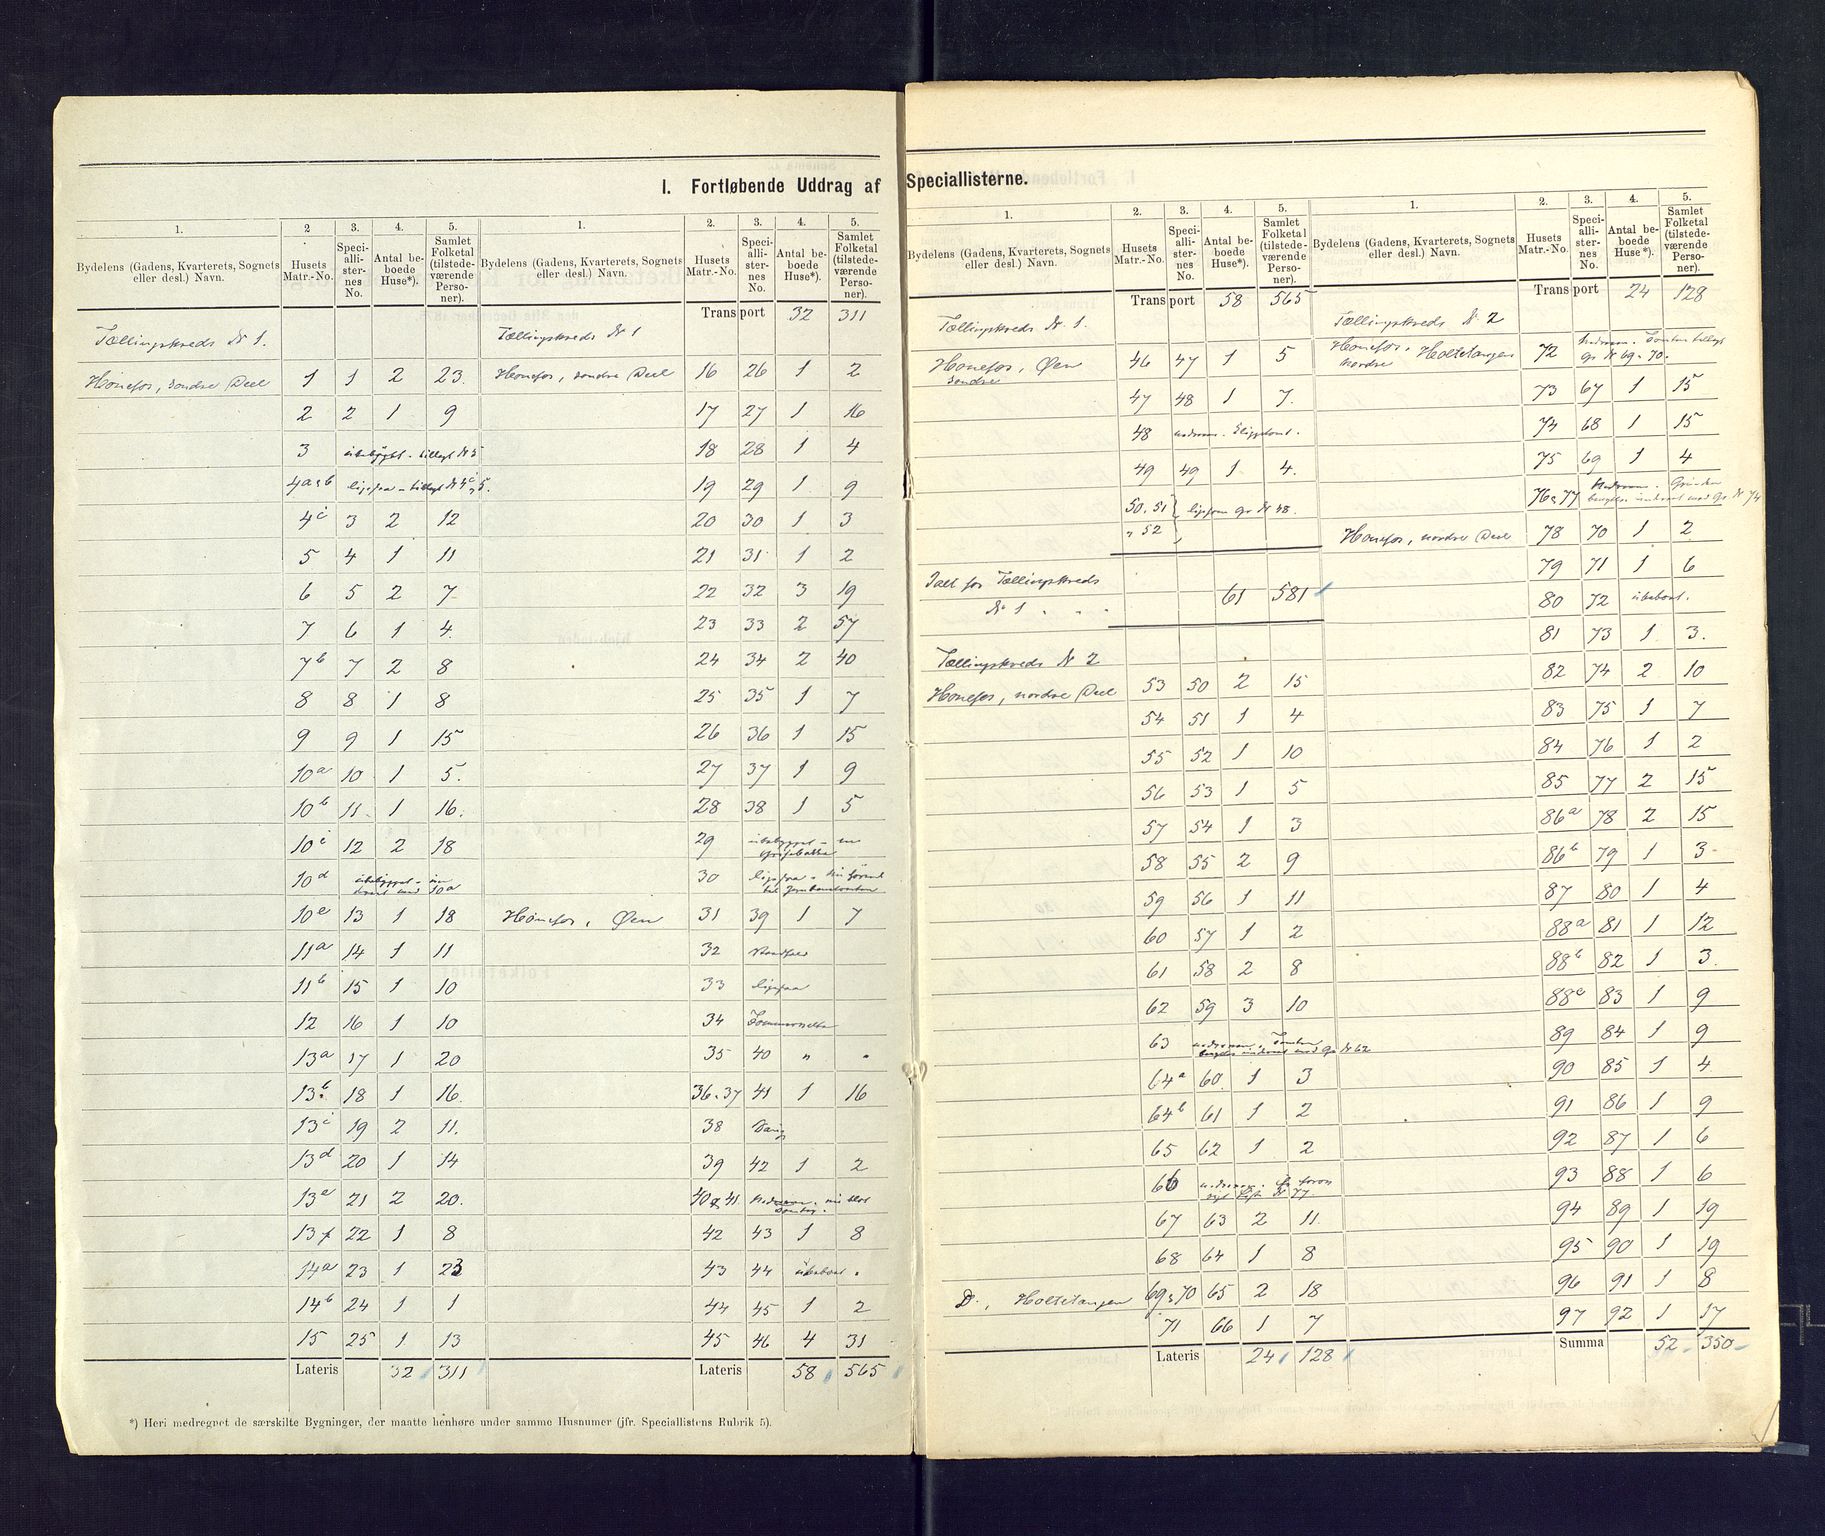 I. Fortløbende Uddrag af Speciallisterne.
1. 2 3. 4. 5.
Bydelens (Gadens, Kvarterets, Sognets eller desl.) Navn. Husets Matr.-No. Speciallisternes No. Antal beboede Huse*). Samlet Folketal (tilstedeværende Personer).
Tællingskreds No 1.
Hønefos, søndre Deel 1 1 2 23.
2 2 1 9
3 ubebygget - tillagt No 5
4a&b ligesaa - tillagt No 4c & 5.
4c 3 2 12
5 4 1 11
6 5 2 7
7 6 1 4.
7b 7 2 8
8 8 1 8
9 9 1 15
10a 10 1 5.
10b 11 1 16.
10c 12 2 18
10d ubebygget - 10a
10e 13 1 18
11a 14 1 11
11b 15 1 10
12 16 1 10
13a 17 1 20
13b 18 1 16.
13c 19 2 11.
13d 20 1 14
13e 21 2 20.
13f 22 1 8
14a 23 1 23
14b 24 1 1
15 25 1 13
Lateris 32 311
*) Heri medregnet de særskilte Bygninger, der maatte henhøre under samme Husnumer (jfr. Speciallistens Rubrik 5).
1. 2. 3. 4. 5.
Bydelens (Gadens, Kvarterets, Sognets eller desl.) Navn. Husets Matr.-No. Speciallisternes No. Antal beboede Huse*). Samlet Folketal (tilstedeværende Personer).
Transport 32 311
Tællingskreds No 1
Hønefos, søndre Deel 16 26 1 2
17 27 1 16
18 28 1 4
19 29 1 9
20 30 1 3
21 31 1 2
22 32 3 19
23 33 2 57
24 34 2 40
25 35 1 7
26 36 1 15
27 37 1 9
28 38 1 5
29 ubebygget -
30 ligesaa -
Hønefos, Øen 31 39 1 7
32 Vandfald
33 ligesaa
34
35 40 " "
36&37 41 1 16
38
39 42 1 2
40&41
42 43 1 8
43 44 ubeboet.
44 45 1 2
45 46 4 31
Lateris 58 565
1. 2. 3. 4. 5.
Bydelens (Gadens, Kvarterets, Sognets eller desl.) Navn. Husets Matr.-No. Speciallisternes No. Antal beboede Huse*). Samlet Folketal (tilstedeværende Personer).
Transport 58 565
Tællingskreds No 1.
Hønefos, Øen 46 47 1 5
søndre
47 48 1 7.
48
49 49 1 4.
50, 51 ligesom Gr No 48.
" 52
Ialt for Tællingskreds
No 1 " " 61 581
Tællingskreds No 2
Hønefos, nordre Deel 53 50 2 15
54 51 1 4
55 52 1 10
56 53 1 5
57 54 1 3
58 55 2 9
59 56 1 11
60 57 1 2
61 58 2 8
62 59 3 10
63 med Gr No 62
64a 60 1 3
64b 61 1 2
65 62 1 2
66
67 63 2 11.
68 64 1 8
Do, Holtetangen 69&70 65 2 18
71 66 1 7
Lateris 24 128
1. 2. 3. 4. 5.
Bydelens (Gadens, Kvarterets, Sognets eller desl.) Navn. Husets Matr.-No. Speciallisternes No. Antal beboede Huse*). Samlet Folketal (tilstedeværende Personer).
Transport 24 128
Tællingskreds No 2
Hønefos, Holtetangen 72 Gr No 69 & 70.
nordre
73 67 1 15
74 68 1 15
75 69 1 4
76&77 med Gr No 74
Hønefos, nordre Deel 78 70 1 2
79 71 1 6
80 72 ubeboet.
81 73 1 3.
82 74 2 10
83 75 1 7
84 76 1 2
85 77 2 15
86a 78 2 15
86b 79 1 3
87 80 1 4
88a 81 1 12
88b 82 1 3.
88c 83 1 9
89 84 1 9
90 85 1 4
91 86 1 9
92 87 1 6
93 88 1 6
94 89 1 19
95 90 1 19
96 91 1 8
97 92 1 17
Summa 52 350